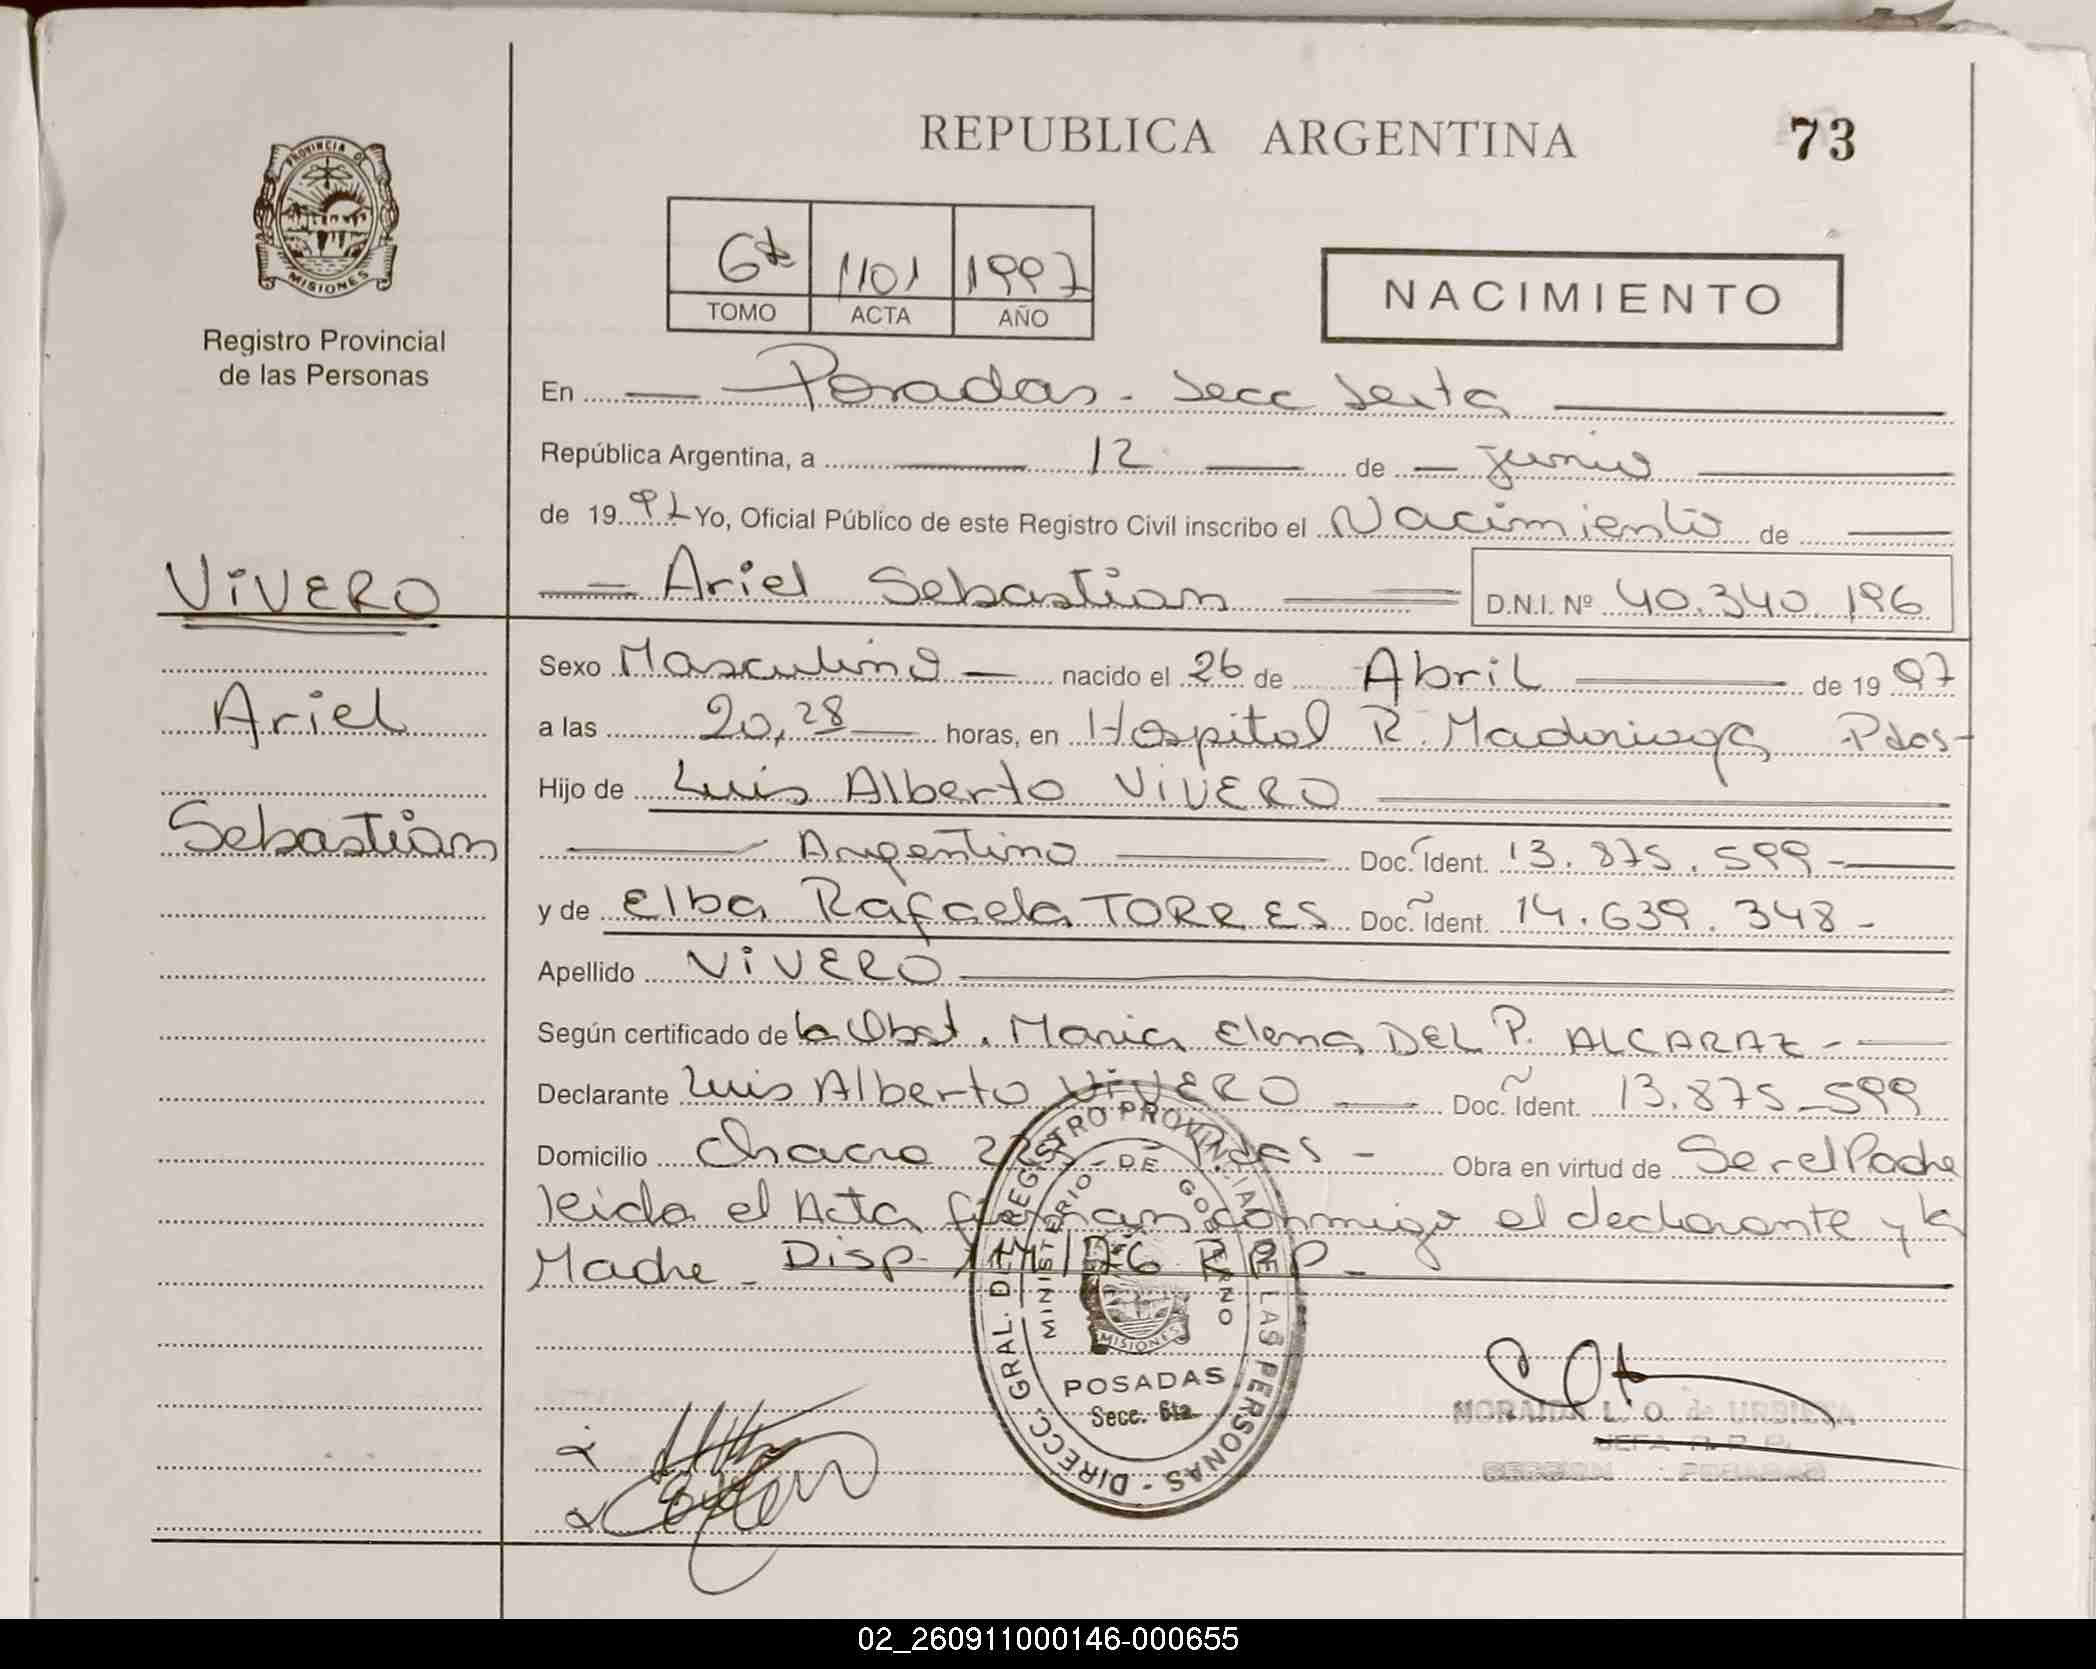 REPUBLICA ARGENTINA
73
PROVINCIA DE
MISIONES
Registro Provincial
de las Personas
1101 1997
TOMO ACTA AÑO
NACIMIENTO
En Posadas - Secc Sexta
República Argentina, a 12 de junio
de 19 97 Yo, Oficial Público de este Registro Civil inscribo el Nacimiento de
VIVERO
Ariel Sebastian D.N.I. Nº 40.340.196
Sexo Masculino nacido el 26 de Abril de 19 97
Ariel
a las 20,28 horas, en Hospital R. Madariaga Pdas-
Hijo de Luis Alberto VIVERO
Sebastian
Argentino Doc. Ident. 13.875.599-
y de Elba Rafaela TORRES Doc. Ident. 14.639.348-
Apellido VIVERO
Según certificado de la Obst. Maria Elena DEL P. ALCARAZ-
Declarante Luis Alberto VIVERO Doc. Ident. 13.875.599
Domicilio Chacra Pdas - Obra en virtud de Ser el Padre
leida el Acta firman conmigo el declarante y la
Madre - Disp. RPP-
DIRECC. GRAL. DEL REGISTRO PROVINCIAL DE LAS PERSONAS -
MINISTERIO - DE GOBIERNO
MISIONES
POSADAS
Secc. 6ta.
L. O. de URBIETA
JEFA R.P.P.
02_260911000146-000655